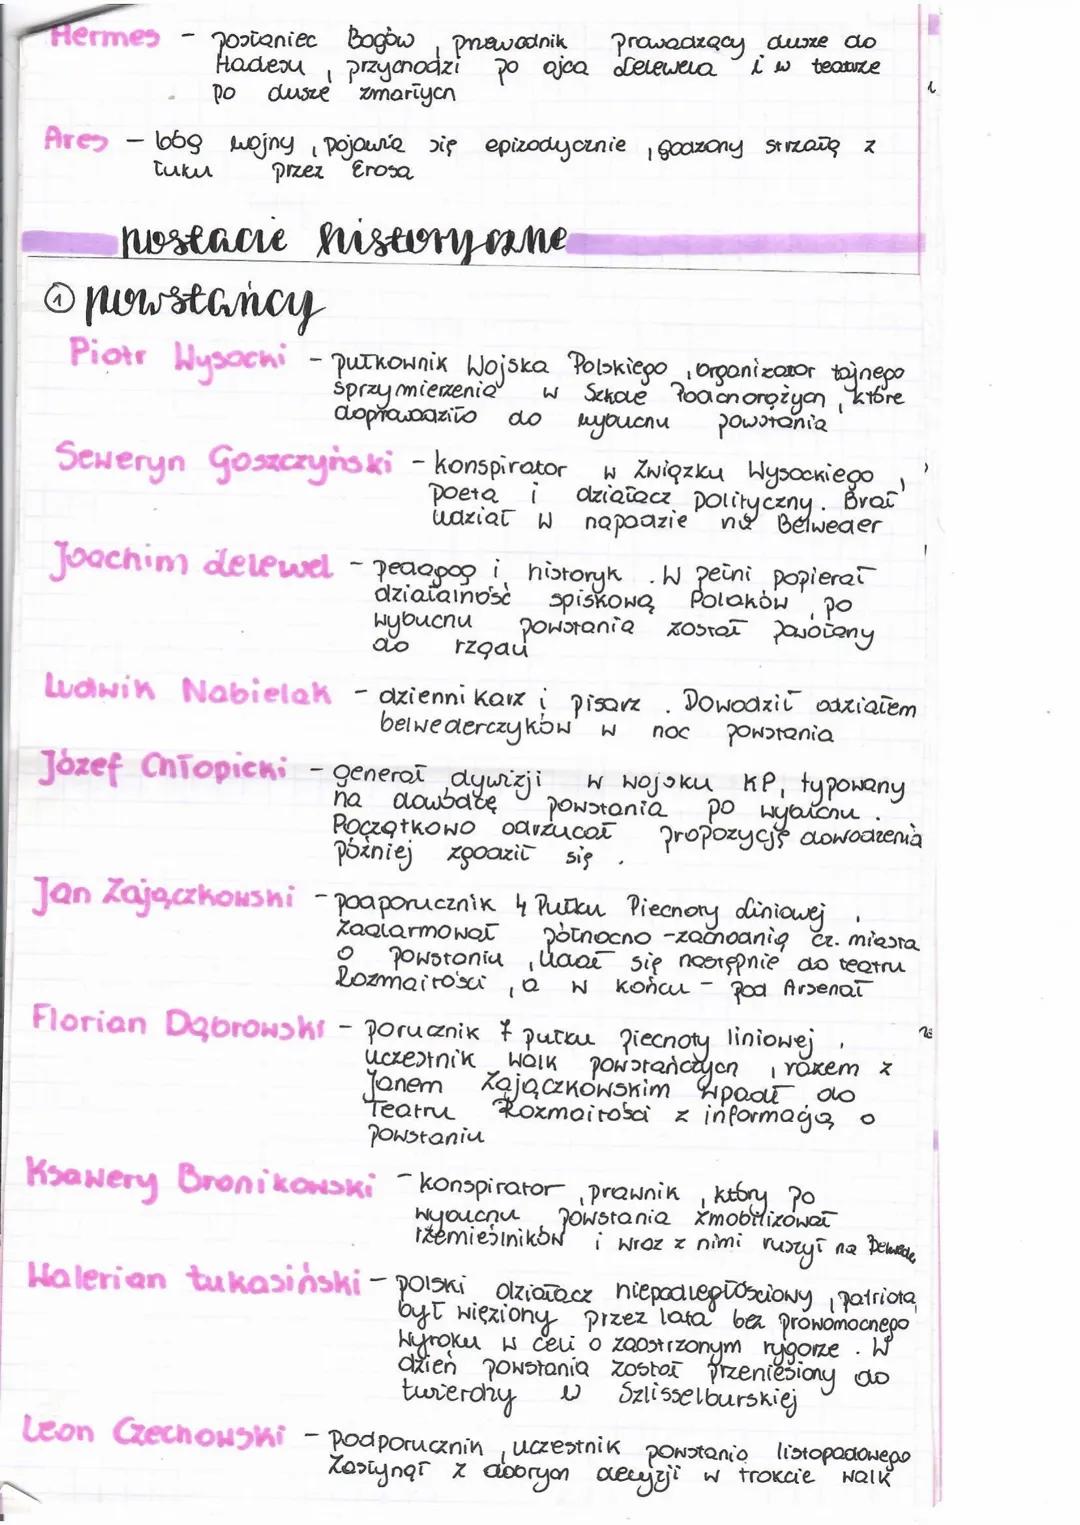 Hermes - posłaniec Bogów, przewodnik prowadzący dusze do
Hadesu, przychodzi po ojca Lelewela i w teatrze
po dusze zmarłych
Ares - bóg wojny, pojawia się epizodycznie, godzony strzałą z
łuku przez Erosa
postacie historyczne
① powstańcy
Piotr Wysocki - pułkownik Wojska Polskiego, organizator tajnego
sprzymierzenia w Szkole Podchorążych, które
doprowadziło do wybuchu powstania
Seweryn Goszczyński - konspirator w Związku Wysockiego,
poeta i działacz polityczny. Brał
udział w napadzie na Belweder
Joachim Lelewel - pedagog i historyk. W pełni popierał
działalność spiskową Polaków, po
wybuchu powstania został powołany
do rządu
Ludwik Nabielak - dziennikarz i pisarz. Dowodził odziałem
belwederczyków w noc powstania
Józef Chłopicki - generał dywizji w wojsku KP, typowany
na dowódcę powstania po wybuchu.
Początkowo odrzucał propozycję dowodzenia
później zgodził się.
Jan Zajączkowski - podporucznik 4 Pułku Piechoty Liniowej,
zaalarmował północno-zachodnią cz. miasta
o powstaniu, udał się następnie do teatru
Rozmaitości, a w końcu - pod Arsenał
Florian Dąbrowski - porucznik 7 pułku piechoty liniowej,
uczestnik walk powstańczych, razem z
Janem Zajączkowskim wpadł do
Teatru Rozmaitości z informacją o
powstaniu
Ksawery Bronikowski - konspirator, prawnik, który po
wybuchu powstania zmobilizował
rzemieślników i wraz z nimi ruszył na Belweder
Walerian Łukasiński - polski działacz niepodległościowy, patriota,
był więziony przez lata bez prawomocnego
wyroku w celi o zaostrzonym rygorze. W
dzień powstania został przeniesiony do
twierdzy w Szlisselburskiej
Leon Czechowski - podporucznik, uczestnik powstania listopadowego
Zasłynął z dobrych decyzji w trakcie walk